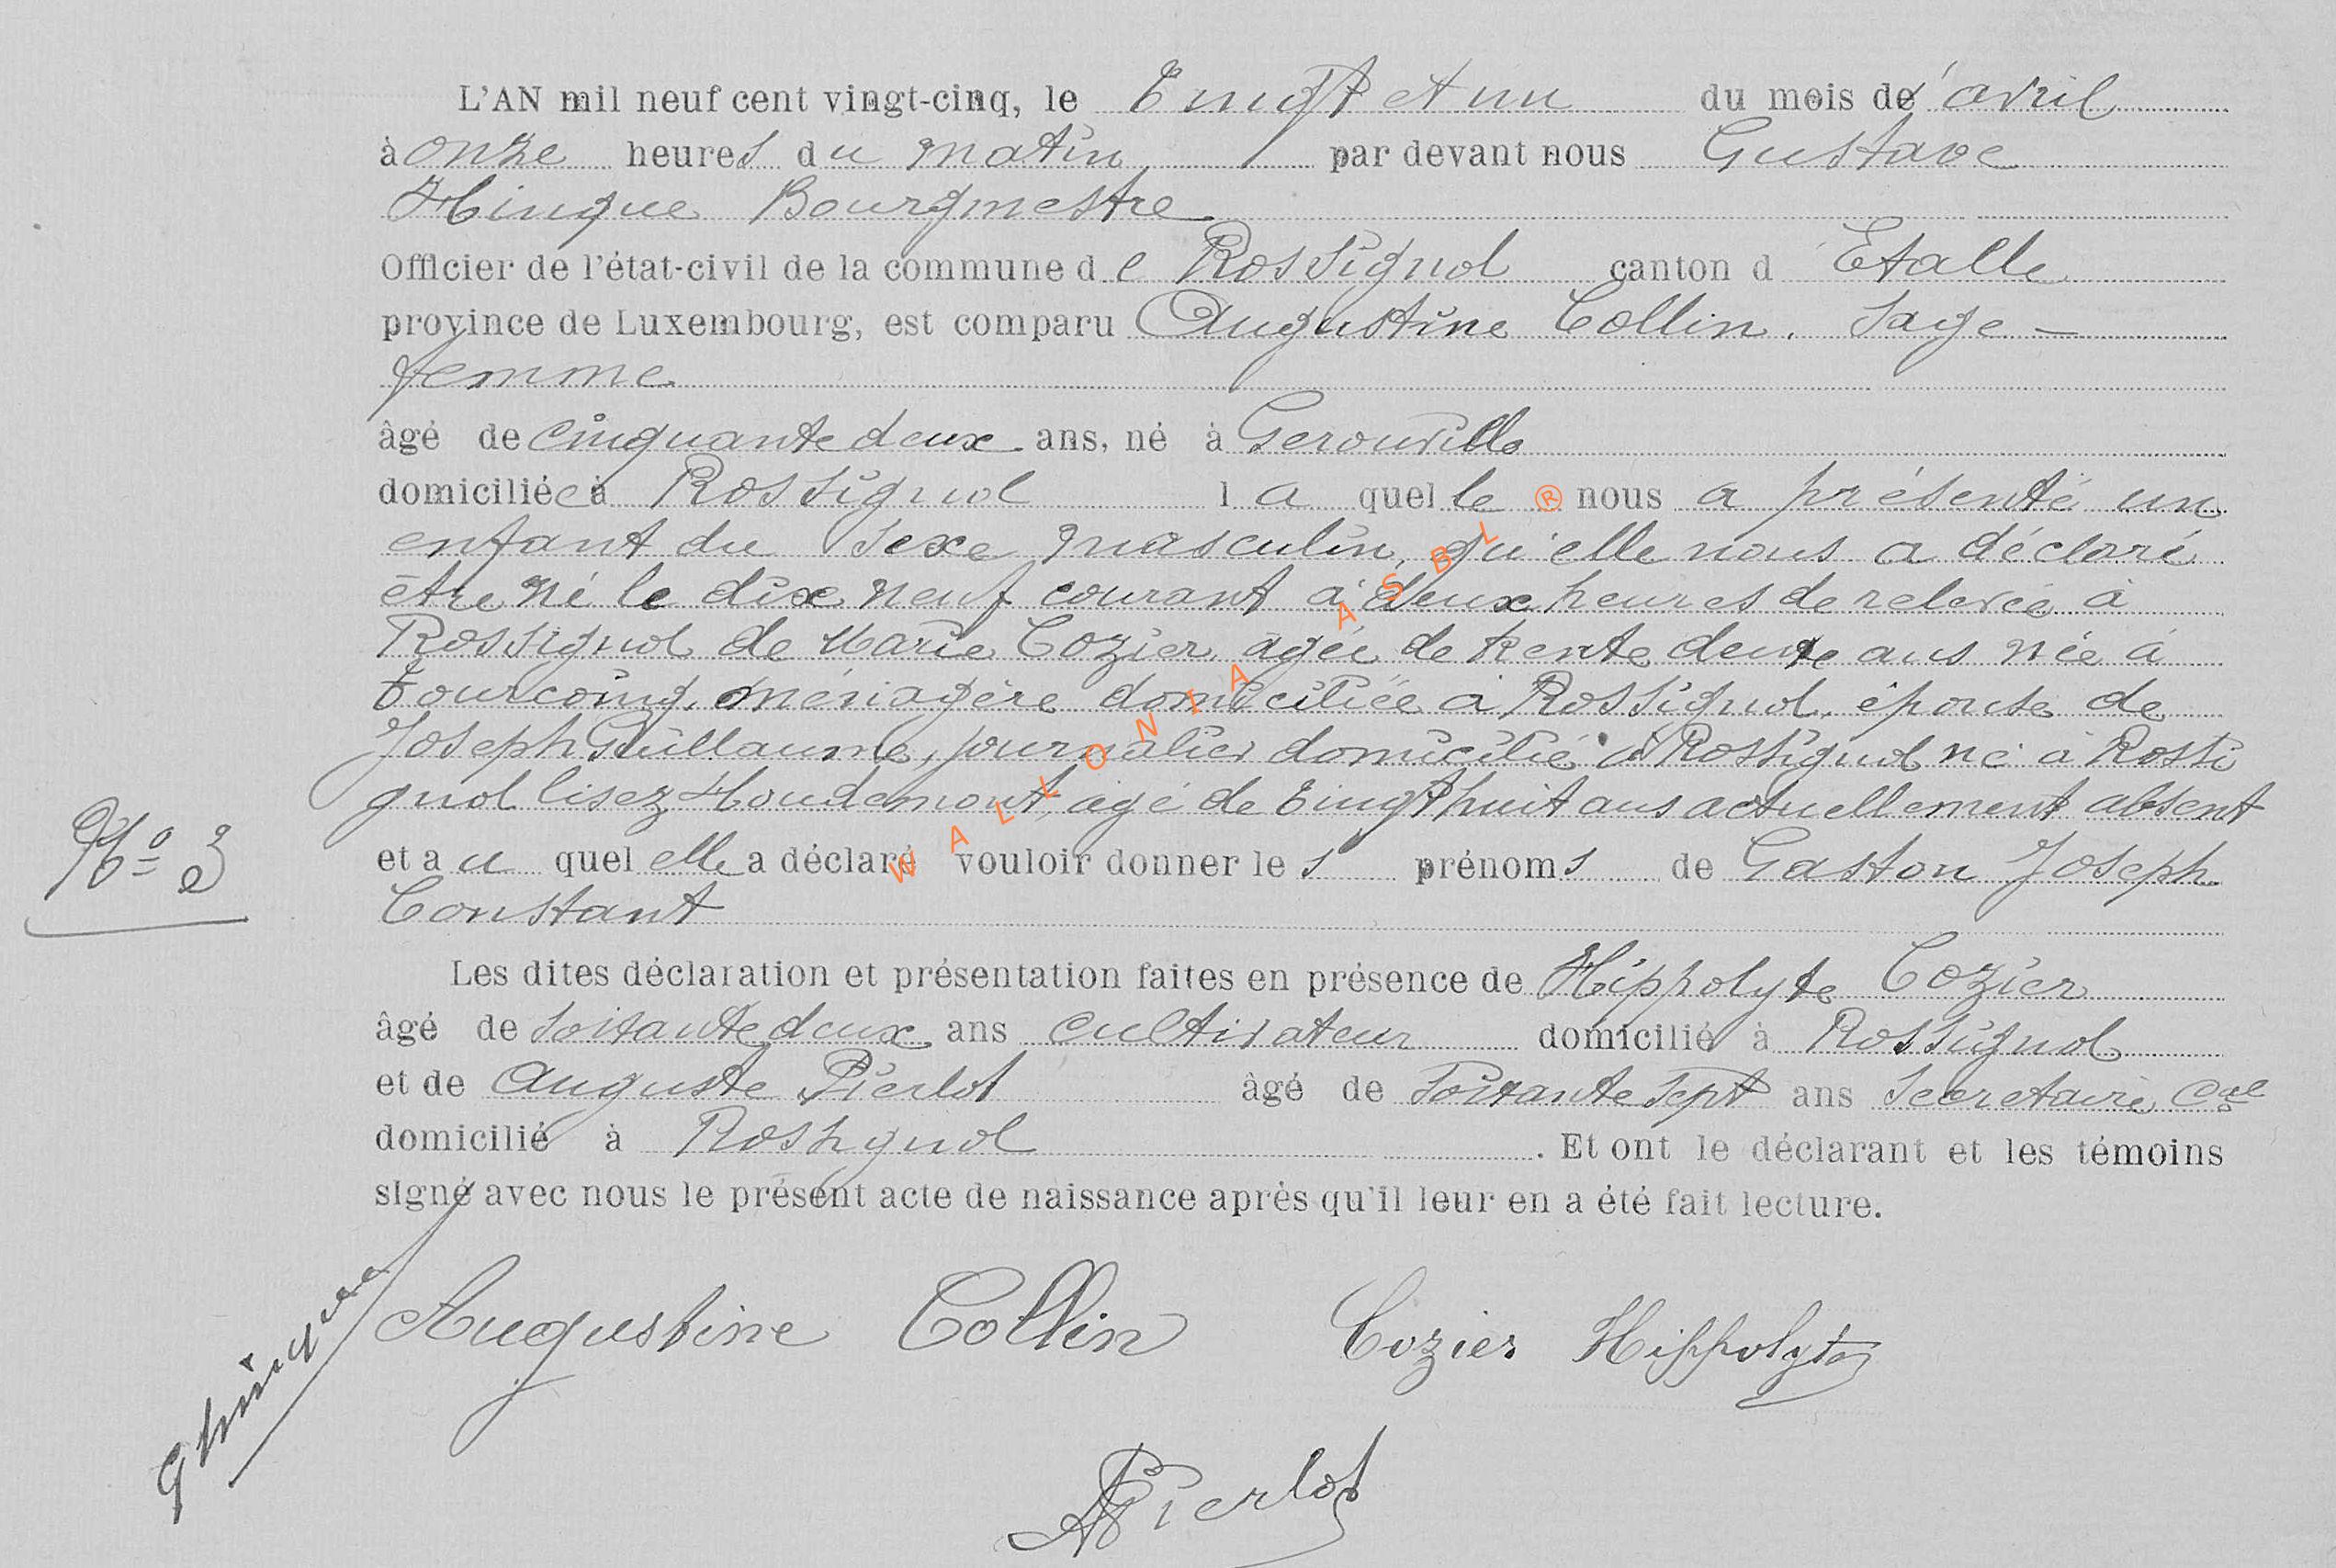 L'AN mil neuf cent vingt-cinq, le Vingt et un du mois d'avril
à onze heures du matin par devant nous Gustave
Hinque Bourgmestre
Officier de l'état-civil de la commune de Rossignol canton d Etalle
province de Luxembourg, est comparu Augustine Collin, Sage-
femme
âgé de cinquante deux ans, né à Gerouville
domiciliée à Rossignol laquelle nous a présenté un
enfant du sexe masculin, qu'elle nous a déclaré
être né le dix neuf courant à deux heures de relevée à
Rossignol de Marie Cozier, agée de trente deux ans née à
tourcoing, ménagère domiciliée à Rossignol, épouse de
Joseph Guillaume, journalier domicilié à Rossignol né à Rossi
gnol lisez Houdemont, agé de Vingt huit ans actuellement absent
N° 3
et au quel elle a déclaré vouloir donner les prénoms de Gaston Joseph
Constant
Les dites déclaration et présentation faites en présence de Hippolyte Cozier
âgé de soixante deux ans cultivateur domicilié à Rossignol
et de Auguste Pierlot âgé de soixante sept ans secretaire cal
domicilié à Rossignol. Et ont le déclarant et les témoins
signé avec nous le présent acte de naissance après qu'il leur en a été fait lecture.
G Hinque
Augustine Collin Cozier Hippolyte
A Pierlot
WALLONIA ASBL ®